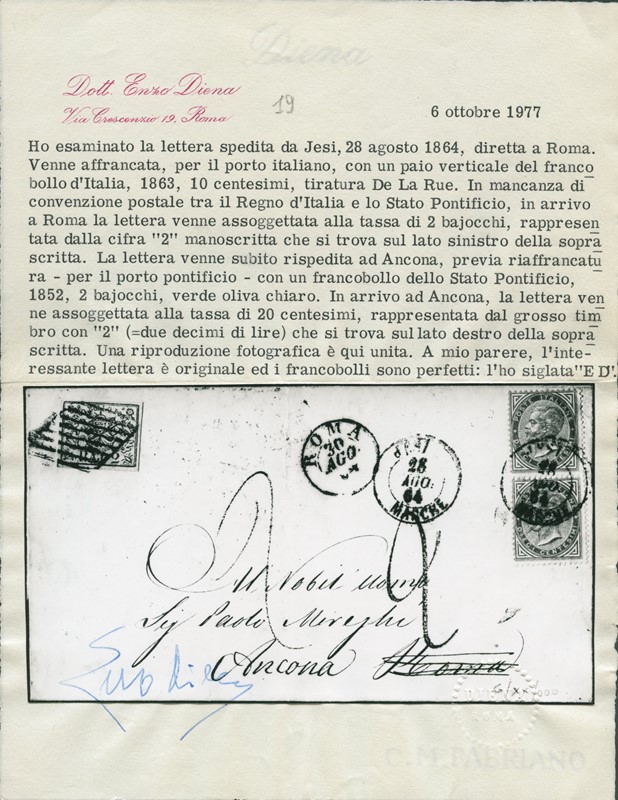 Diena
Dott. Enzo Diena
Via Crescenzio 19. Roma
19
6 ottobre 1977
Ho esaminato la lettera spedita da Jesi, 28 agosto 1864, diretta a Roma.
Venne affrancata, per il porto italiano, con un paio verticale del franco
bollo d'Italia, 1863, 10 centesimi, tiratura De La Rue. In mancanza di
convenzione postale tra il Regno d'Italia e lo Stato Pontificio, in arrivo
a Roma la lettera venne assoggettata alla tassa di 2 bajocchi, rappresen
tata dalla cifra "2" manoscritta che si trova sul lato sinistro della sopra
scritta. La lettera venne subito rispedita ad Ancona, previa riaffrancatu
ra - per il porto pontificio - con un francobollo dello Stato Pontificio,
1852, 2 bajocchi, verde oliva chiaro. In arrivo ad Ancona, la lettera ven
ne assoggettata alla tassa di 20 centesimi, rappresentata dal grosso tim
bro con "2" (=due decimi di lire) che si trova sul lato destro della sopra
scritta. Una riproduzione fotografica è qui unita. A mio parere, l'inte-
ressante lettera è originale ed i francobolli sono perfetti: l'ho siglata "E D".
ROMA
30
AGO
64
JESI
28
AGO.
64
MARCHE
POSTE ITALIANE
28
AGO.
64
MARCHE
DIECI CENTESIMI
2
2
Al Nobil Uomo
Sig Paolo Mireghi
Ancona Roma
Enzo Diena
ROMA
C.M. FABRIANO